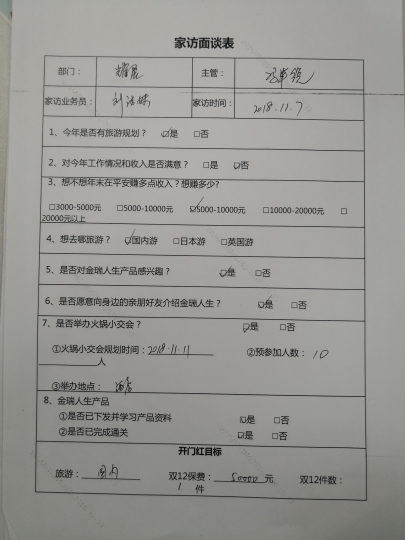 家访面谈表
部门： 主管：
家访业务员： 家访时间： 2018.11.7
1、今年是否有旅游规划？ ☑是 □否
2、对今年工作情况和收入是否满意？ □是 ☑否
3、想不想年末在平安赚多点收入？想赚多少?
□3000-5000元 □5000-10000元 ☑5000-10000元 □10000-20000元 □
20000元以上
4、想去哪旅游？ ☑国内游 □日本游 □英国游
5、是否对金瑞人生产品感兴趣？ ☑是 □否
6、是否愿意向身边的亲朋好友介绍金瑞人生？ ☑是 □否
7、是否举办火锅小交会？ ☑是 □否
①火锅小交会规划时间：2018.11.11 ②预参加人数： 10
人
③举办地点： 酒店
8、金瑞人生产品
①是否已下发并学习产品资料 ☑是 □否
②是否已完成通关 ☑是 □否
开门红目标
旅游： 国内 双12保费： 50000 元 双12件数：
1 件